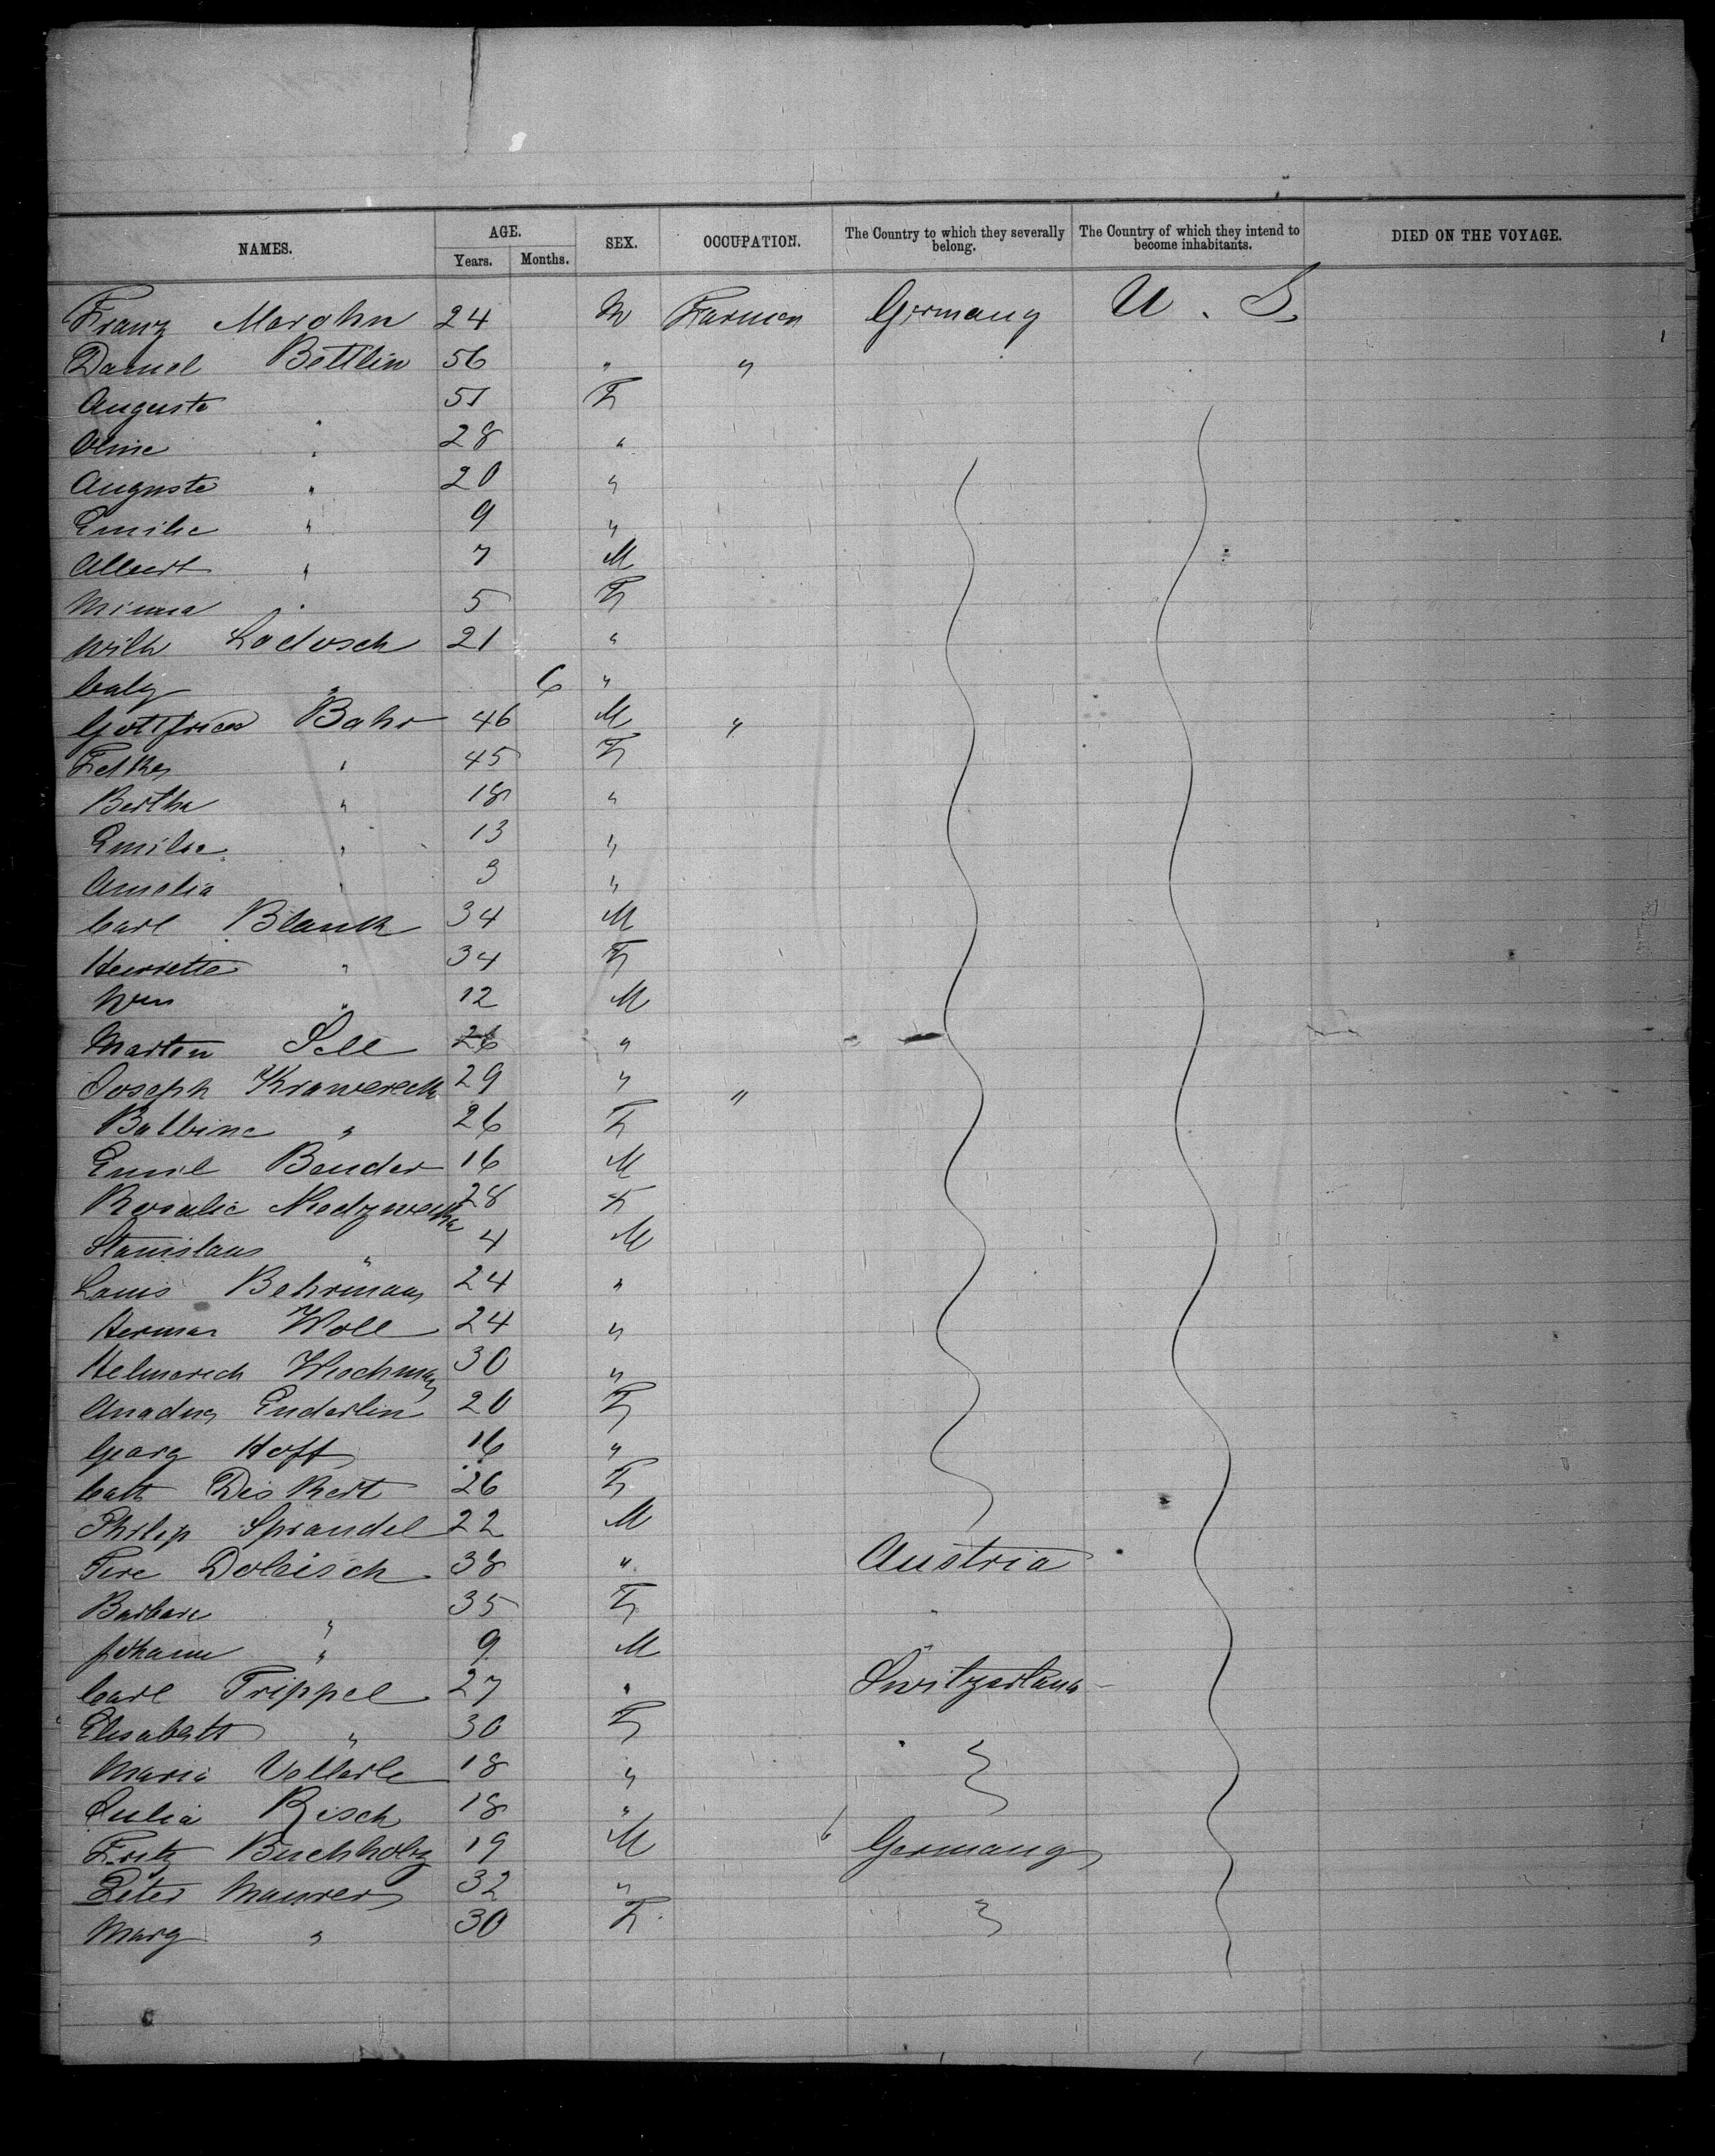 NAMES. AGE. Years. Months. SEX. OCCUPATION. The Country to which they severally belong. The Country of which they intend to become inhabitants. DIED ON THE VOYAGE.
Franz Marohn 24 M Farmer Germany U. S.
Daniel Bettlin 56 " "
Auguste " 51 F
" 28 "
Auguste " 20 "
Emilie " 9 "
Albert " 7 M
Minna " 5 F
Wilh Lodosch 21 "
" 6 "
Gottfried Bahr 46 M "
" 45 F
Bertha " 18 "
Emilie " 13 "
Amelia " 3 "
Carl Blank 34 M
Henriette " 34 F
Wm " 12 M
Martin Sell 26 "
Joseph 29 " "
Balbine " 26 F
Emil Bender 16 M
Rosalie 28 F
Stanislaus " 4 M
Louis Behrman 24 "
Herman Woll 24 "
30 "
Enderlin 20 F
Georg Hoff 16 "
Cath 26 F
Philip Sprandel 22 M
38 " Austria
Barbara " 35 F
Johann " 9 M
Carl Trippel 27 " Switzerland
Elisabeth " 30 F
Maria 18 "
Julia Risch 18 "
Fritz Buchholz 19 M Germany
Peter Maurer 32 "
Marg " 30 F